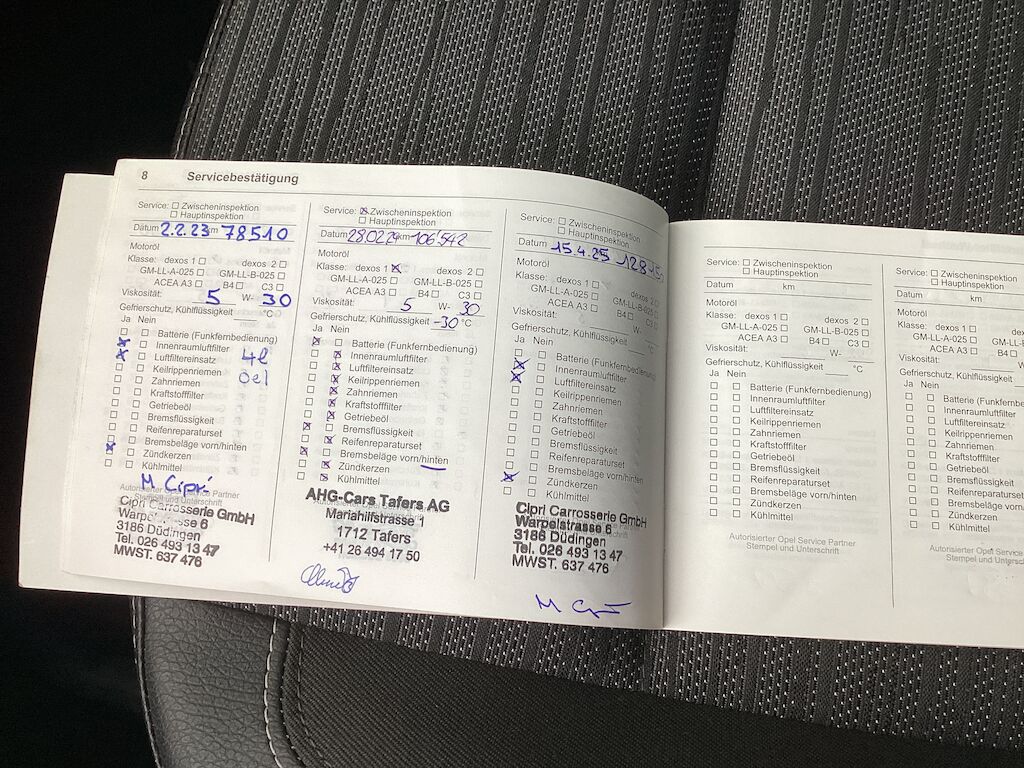 8 Servicebestätigung
Service: ☐ Zwischeninspektion
☐ Hauptinspektion
Datum 2.2.23 km 78510
Motoröl
Klasse: dexos 1 ☐ dexos 2 ☐
GM-LL-A-025 ☐ GM-LL-B-025 ☐
ACEA A3 ☐ B4 ☐ C3 ☐
Viskosität: 5 W- 30
Gefrierschutz, Kühlflüssigkeit °C
Ja Nein
Batterie (Funkfernbedienung)
Innenraumluftfilter
Luftfiltereinsatz 4l
Keilrippenriemen Oel
Zahnriemen
Kraftstofffilter
Getriebeöl
Bremsflüssigkeit
Reifenreparaturset
Bremsbeläge vorn/hinten
Zündkerzen
Kühlmittel
M Cipri
Autorisierter Opel Service Partner
Stempel und Unterschrift
Cipri Carrosserie GmbH
Warpelstrasse 6
3186 Düdingen
Tel. 026 493 13 47
MWST. 637 476
Service: ☒ Zwischeninspektion
☐ Hauptinspektion
Datum 28.02.24 km 106'542
Motoröl
Klasse: dexos 1 ☒ dexos 2 ☐
GM-LL-A-025 ☐ GM-LL-B-025 ☐
ACEA A3 ☐ B4 ☐ C3 ☐
Viskosität: 5 W- 30
Gefrierschutz, Kühlflüssigkeit -30 °C
Ja Nein
Batterie (Funkfernbedienung)
Innenraumluftfilter
Luftfiltereinsatz
Keilrippenriemen
Zahnriemen
Kraftstofffilter
Getriebeöl
Bremsflüssigkeit
Reifenreparaturset
Bremsbeläge vorn/hinten
Zündkerzen
Kühlmittel
AHG-Cars Tafers AG
Mariahilfstrasse 1
1712 Tafers
+41 26 494 17 50
Service: ☐ Zwischeninspektion
☐ Hauptinspektion
Datum 15.4.25
Motoröl
Klasse: dexos 1 ☐ dexos 2
GM-LL-A-025 ☐ GM-LL-B-025
ACEA A3 ☐ B4 ☐ C3
Viskosität: W-
Gefrierschutz, Kühlflüssigkeit °C
Ja Nein
Batterie (Funkfernbedienung)
Innenraumluftfilter
Luftfiltereinsatz
Keilrippenriemen
Zahnriemen
Kraftstofffilter
Getriebeöl
Bremsflüssigkeit
Reifenreparaturset
Bremsbeläge vorn/hinten
Zündkerzen
Kühlmittel
Cipri Carrosserie GmbH
Warpelstrasse 6
3186 Düdingen
Tel. 026 493 13 47
MWST. 637 476
Service: ☐ Zwischeninspektion
☐ Hauptinspektion
Datum km
Motoröl
Klasse: dexos 1 ☐ dexos 2 ☐
GM-LL-A-025 ☐ GM-LL-B-025 ☐
ACEA A3 ☐ B4 ☐ C3 ☐
Viskosität: W-
Gefrierschutz, Kühlflüssigkeit °C
Ja Nein
Batterie (Funkfernbedienung)
Innenraumluftfilter
Luftfiltereinsatz
Keilrippenriemen
Zahnriemen
Kraftstofffilter
Getriebeöl
Bremsflüssigkeit
Reifenreparaturset
Bremsbeläge vorn/hinten
Zündkerzen
Kühlmittel
Autorisierter Opel Service Partner
Stempel und Unterschrift
Service: ☐ Zwischeninspektion
☐ Hauptinspektion
Datum km
Motoröl
Klasse: dexos 1 ☐
GM-LL-A-025 ☐
ACEA A3 ☐ B4
Viskosität: W-
Gefrierschutz, Kühlflüssigkeit
Ja Nein
Batterie
Innenraumluftfilter
Luftfiltereinsatz
Keilrippenriemen
Zahnriemen
Kraftstofffilter
Getriebeöl
Bremsflüssigkeit
Reifenreparaturset
Bremsbeläge vorn/hinten
Zündkerzen
Kühlmittel
Autorisierter Opel Service
Stempel und